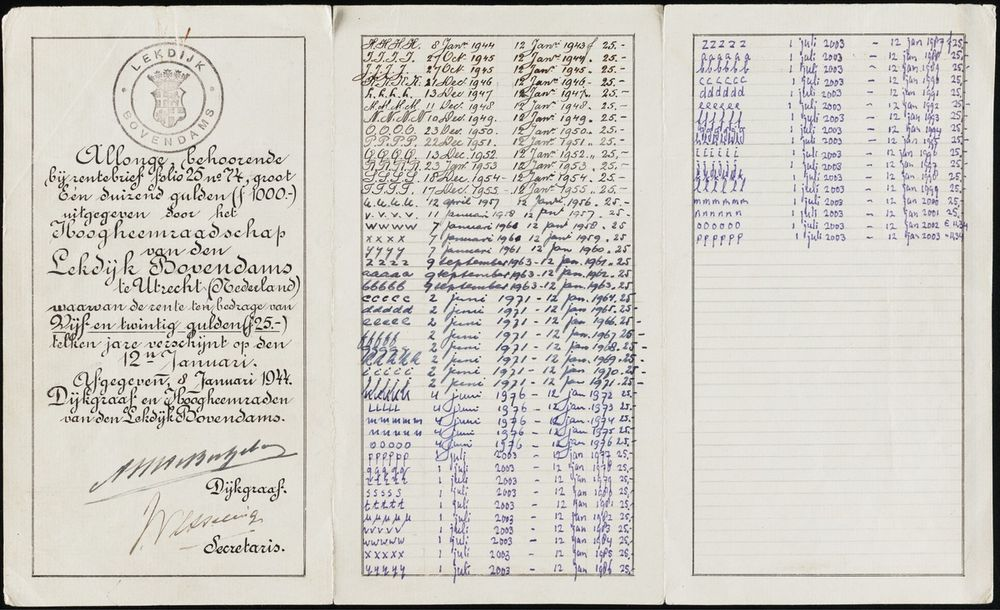 LEKDIJK
BOVENDAMS
Allonge, behoorende
bij rentebrief folio 25 no 74, groot
Een duizend gulden (ƒ 1000.-)
uitgegeven door het
Hoogheemraadschap
van den
Lekdijk Bovendams
te Utrecht (Nederland)
waarvan de rente ten bedrage van
Vijf en twintig gulden (ƒ 25.-)
telken jare verschijnt op den
12n Januari.
Afgegeven, 8 Januari 1944.
Dijkgraaf en Hoogheemraden
van den Lekdijk Bovendams.
Dijkgraaf.
Secretaris.
H.H.H.H. 8 Janr 1944 12 Janr 1943 ƒ 25.-
I.I.I.I. 27 Oct. 1945 12 Janr 1944. 25.-
27 Oct. 1945 12 Janr 1945. 25.-
21 Dec. 1946 12 Janr 1946. 25.-
L.L.L.L. 13 Dec. 1947 12 Janr 1947. 25.-
M.M.M.M. 11 Dec. 1948 12 Janr 1948. 25.-
N.N.N.N. 10 Dec. 1949. 12 Janr 1949. 25.-
O.O.O.O. 23 Dec. 1950. 12 Janr 1950. 25.-
P.P.P.P. 22 Dec. 1951. 12 Janr 1951. 25.-
Q.Q.Q.Q. 13 Dec. 1952. 12 Janr 1952. 25.-
23 Janr 1953 12 Janr 1953. 25.-
18 Dec. 1954 12 Janr 1954. 25.-
T.T.T.T. 17 Dec. 1955 12 Janr 1955. 25.-
u.u.u.u. 12 april 1957 12 Janr 1956. 25.-
v.v.v.v. 11 januari 1958 12 janr 1957. 25
wwww 7 januari 1960 12 janr 1958. 25
xxxx 7 januari 1960 12 janr 1959. 25
yyyy januari 1961 12 janr 1960. 25
zzzz 9 september 1963 - 12 jan. 1961. 25
aaaaa 9 september 1963 - 12 jan. 1962. 25
bbbbb 9 september 1963 - 12 jan. 1963. 25
ccccc 2 juni 1971 - 12 jan. 1964. 25
ddddd 2 juni 1971 - 12 jan. 1965. 25
eeeee 2 juni 1971 - 12 jan. 1966. 25
fffff 2 juni 1971 - 12 jan. 1967. 25
2 juni 1971 - 12 jan. 1968. 25
hhhhh 2 juni 1971 - 12 jan. 1969. 25
iiiii 2 juni 1971 - 12 jan. 1970. 25
jjjjj 2 juni 1971 - 12 jan. 1971. 25
kkkkk 4 juni 1976 - 12 jan 1972 25
LLLLL 4 juni 1976 - 12 jan 1973 25
mmmmm 4 juni 1976 - 12 jan 1974 25
nnnnn 4 juni 1976 - 12 jan 1975 25
ooooo 4 juni 1976 - 12 jan 1976 25
ppppp 1 juli 2003 - 12 jan 1977 25,-
qqqqq 1 juli 2003 - 12 jan 1978 25,-
rrrrr 1 juli 2003 - 12 jan 1979 25,-
sssss 1 juli 2003 - 12 jan 1980 25,-
ttttt 1 juli 2003 - 12 jan 1981 25,-
uuuuu 1 juli 2003 - 12 jan 1982 25,-
vvvvv 1 juli 2003 - 12 jan 1983 25,-
wwwww 1 juli 2003 - 12 jan 1984 25,-
xxxxx 1 juli 2003 - 12 jan 1985 25,-
yyyyy 1 juli 2003 - 12 jan 1986 25,-
zzzzz 1 juli 2003 - 12 jan 1987 ƒ 25,-
aaaaaa 1 juli 2003 - 12 jan 1988 25,-
bbbbbb 1 juli 2003 - 12 jan 1989 25,-
cccccc 1 juli 2003 - 12 jan 1990 25,-
dddddd 1 juli 2003 - 12 jan 1991 25,-
eeeeee 1 juli 2003 - 12 jan 1992 25,-
ffffff 1 juli 2003 - 12 jan 1993 25,-
1 juli 2003 - 12 jan 1994 25,-
hhhhhh 1 juli 2003 - 12 jan 1995 25,-
iiiiii 1 juli 2003 - 12 jan 1996 25,-
jjjjjj 1 juli 2003 - 12 jan 1997 25,-
kkkkkk 1 juli 2003 - 12 jan 1998 25,-
llllll 1 juli 2003 - 12 jan 1999 25,-
mmmmmm 1 juli 2003 - 12 jan 2000 25,-
nnnnnn 1 juli 2003 - 12 jan 2001 25,-
oooooo 1 juli 2003 - 12 jan 2002 € 11,34
pppppp 1 juli 2003 - 12 jan 2003 € 11,34